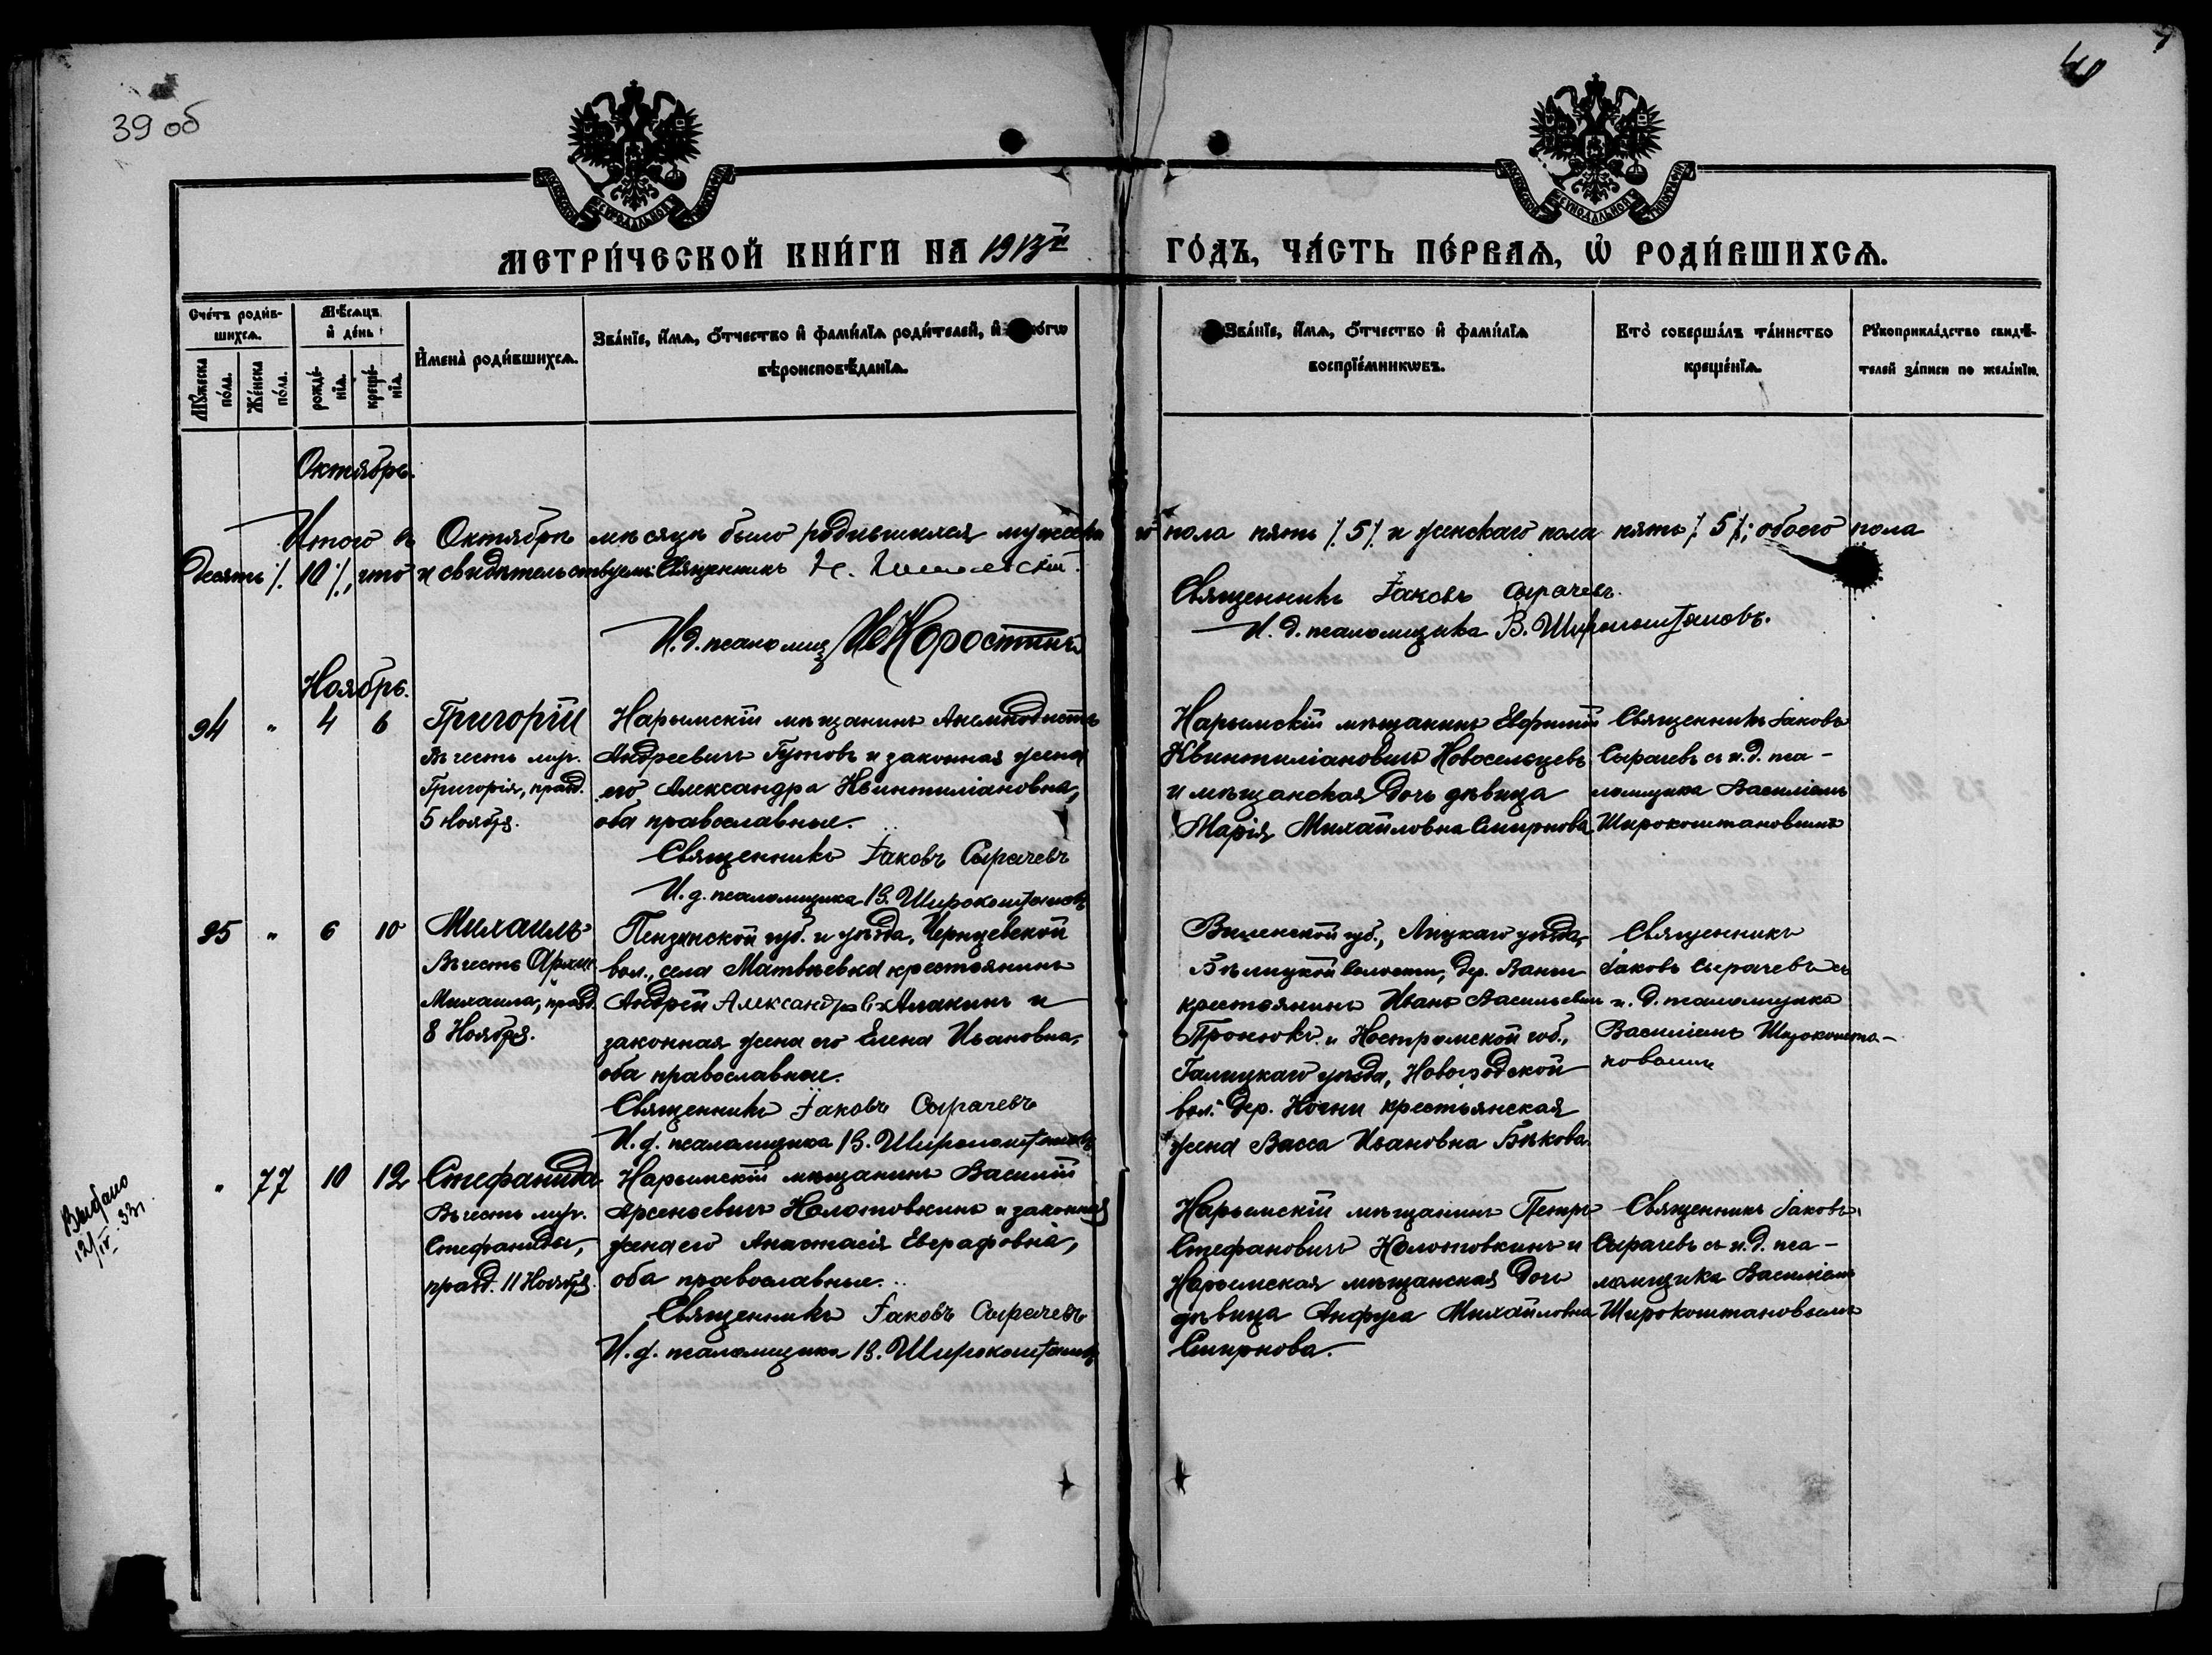 39 об
40
МЕТРИ́ЧЕСКОЙ КНИ́ГИ НА 1913й ГО́ДЪ, ЧА́СТЬ ПЕ́РВАѦ, Ѡ҆ РОДИ́ВШИХСѦ.
Сче́тъ роди́в-
шихсѧ.
Мꙋ́жеска по́ла.
Же́нска по́ла.
Мѣ́сѧцъ
и҆ де́нь
рожде́-
нїѧ.
креще́-
нїѧ.
И҆мена̀ роди́вшихсѧ.
Зва́нїе, и҆́мѧ, ѻ҆́тчество и҆ фами́лїѧ роди́телей, и҆
вѣроисповѣ́данїѧ.
Зва́нїе, и҆́мѧ, ѻ҆́тчество и҆ фами́лїѧ
воспрїе́мникѡвъ.
Кто̀ соверша́лъ та́инство
креще́нїѧ.
Рꙋкоприкла́дство свидѣ́-
телей за́писи по жела́нїю.
Октябрь.
Итого въ Октябрѣ мѣсяцѣ было родившихся мужеска го пола пять /.5/. и женскаго пола пять /.5/.; обоего пола
десять /. 10 /., что и свидѣтельствуемъ: Священникъ Н.
Священникъ Іаковъ Сырачевъ.
И. д. псаломщ. Коростинъ
И. д. псаломщика В. Широкоштановъ.
Ноябрь.
94 " 4 6
Григорій
Въ честь муч.
Григорія, празд.
5 Ноября.
Нарымскій мѣщанинъ Анемподистъ
Андреевичъ Гутовъ и законная жена
его Александра Квинтиліановна,
оба православные.
Священникъ Іаковъ Сырачевъ
И. д. псаломщика В. Широкоштановъ
Нарымскій мѣщанинъ Евфимій
Квинтиліановичъ Новосельцевъ
и мѣщанская дочь дѣвица
Марія Михайловна Смирнова
Священникъ Іаковъ
Сырачевъ съ и. д. пса-
ломщика Василіемъ
Широкоштановымъ
95 " 6 10
Михаилъ
Въ честь Архис.
Михаила, празд.
8 Ноября.
Пензенской губ. и уѣзда, Чернцевской
вол., села Матвѣевка крестьянинъ
Андрей Александровъ Апакинъ и
законная жена его Елена Ивановна,
оба православные.
Священникъ Іаковъ Сырачевъ
И. д. псаломщика В. Широкоштановъ
Виленской губ., Лидкаго уѣзда,
Бѣлицкой волости, дер. Ваньи
крестьянинъ Иванъ Васильевичъ
Пронюкъ и Костромской губ.,
Галицкаго уѣзда, Новоградской
вол. дер. Ночни крестьянская
жена Васса Ивановна Быкова
Священникъ
Іаковъ Сырачевъ съ
и. д. псаломщика
Василіемъ Широкошта-
новымъ
" 77 10 12
Стефанида
Въ честь муч.
Стефаниды,
празд. 11 Ноября.
Нарымскій мѣщанинъ Василій
Арсеньевичъ Колотовкинъ и законная
жена его Анастасія Евграфовна,
оба православные.
Священникъ Іаковъ Сырачевъ
И. д. псаломщика В. Широкоштановъ
Нарымскій мѣщанинъ Петръ
Стефановичъ Колотовкинъ и
Нарымская мѣщанская дочь
дѣвица Анфуса Михайловна
Смирнова.
Священникъ Іаковъ
Сырачевъ съ и. д. пса-
ломщика Василіемъ
Широкоштановымъ
Выдано
12/IV. 33г.